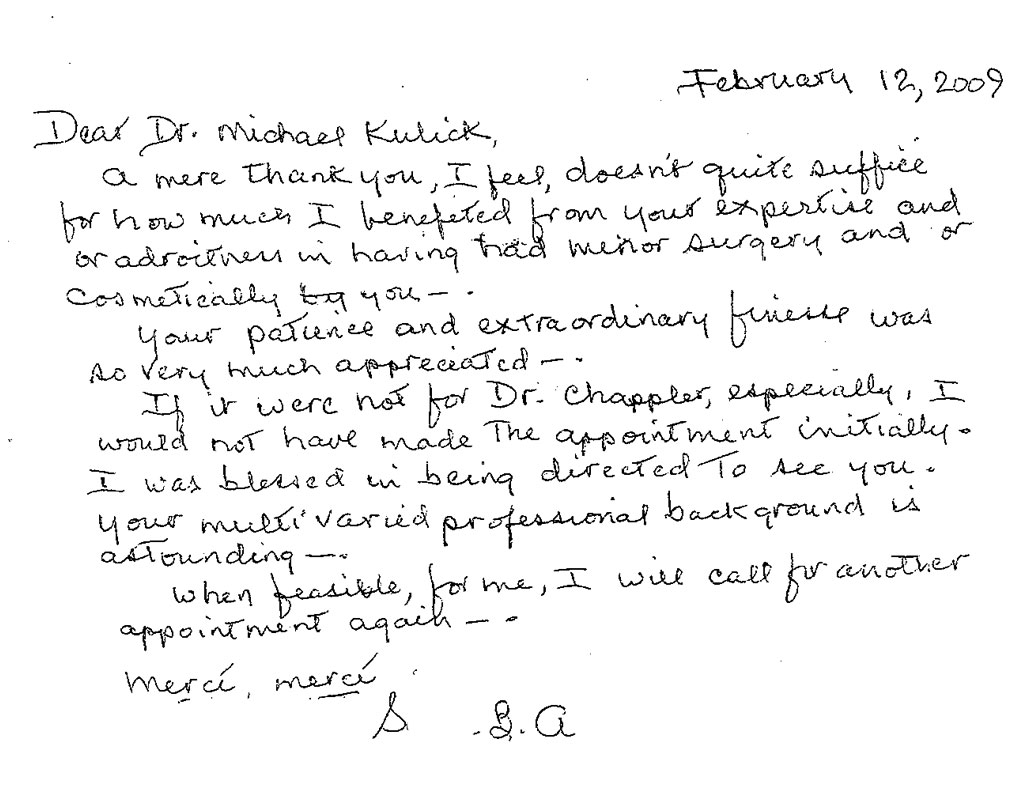 February 12, 2009
Dear Dr. Michael Kulick,
A mere thank you, I feel, doesn't quite suffice
for how much I benefeted from your expertise and
or adroitness in having had minor surgery and or
cosmetically by you – .
Your patience and extraordinary finesse was
so very much appreciated – .
If it were not for Dr. Chappler, especially, I
would not have made the appointment initially.
I was blessed in being directed to see you.
Your multi varied professional background is
astounding – .
When feasible, for me, I will call for another
appointment again – .
Merci, merci
S .B.A